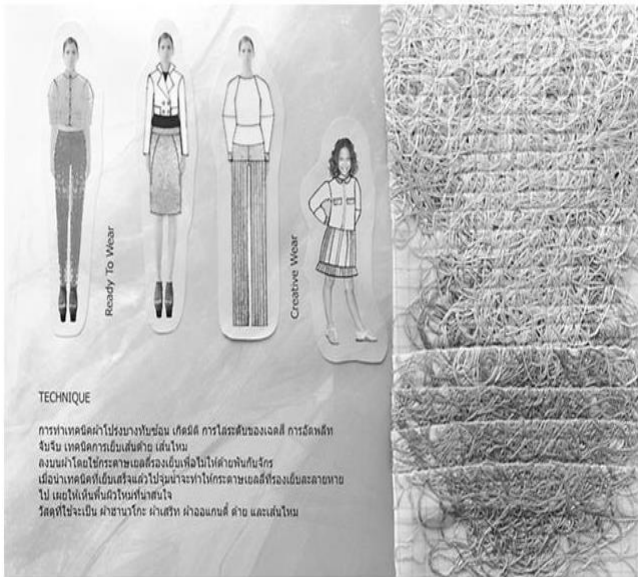 Ready To Wear
Creative Wear
TECHNIQUE
การทำเทคนิคผ้าโปร่งบางทับซ้อน เกิดมิติ การไล่ระดับของเฉดสี การอัดพลีท
จับจีบ เทคนิคการเย็บเส้นด้าย เส้นไหม
ลงบนผ้าโดยใช้กระดาษเยลลี่รองเย็บเพื่อไม่ให้ด้ายพันกับจักร
เมื่อนำเทคนิคที่เย็บเสร็จแล้วไปจุ่มน้ำจะทำให้กระดาษเยลลี่ที่รองเย็บละลายหาย
ไป เผยให้เห็นพื้นผิวใหม่ที่น่าสนใจ
วัสดุที่ใช้จะเป็น ผ้าฮานาโกะ ผ้าเสริท ผ้าออแกนดี้ ด้าย และเส้นไหม